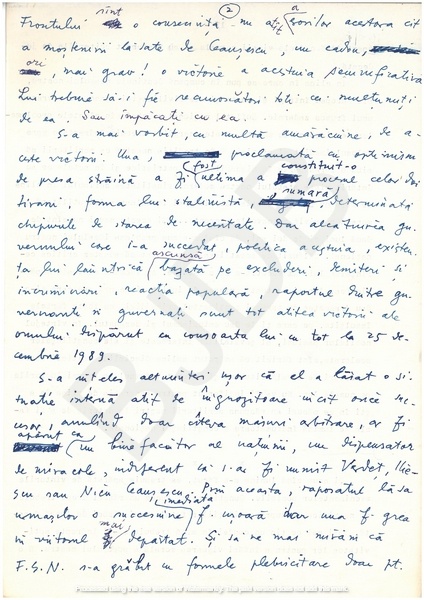 2
sînt a
Frontului o consecință nu atît erorilor acestora cît
a moștenirii lăsate de Ceaușescu, un cadou,
ori, mai grav! o victorie a acestuia semnificativă.
Lui trebuie să-i fie recunoscători toți cei mulțumiți
de ea. Sau împăcați cu ea.
S-a mai vorbit, cu multă amărăciune, de a-
ceste victorii. Una, proclamată cu optimism
fost constituit-o
de presa străină a fi ultima a procesul celor doi
sumară,
tirani, forma lui stalinistă, determinată
chipurile de starea de necesitate. Dar alcătuirea gu-
vernului care i-a succedat, politica acestuia, existen-
ascunsă
ța lui lăuntrică bazată pe excluderi, demiteri și
incriminări, reacția populară, raportul dintre gu-
vernanți și guvernați sunt tot atîtea victorii ale
omului dispărut cu consoarta lui cu tot la 25 de-
cembrie 1989.
S-a înțeles altminteri ușor că el a lăsat o si-
tuație internă atît de îngrozitoare încît orice suc-
cesor, anulînd doar cîteva măsuri arbitrare, ar fi
apărut ca un binefăcător al națiunii, un dispensator
de miracole, indiferent că s-ar fi numit Verdeț, Ilie-
scu sau Nicu Ceaușescu. Prin aceasta, răposatul lăsa
imediata
urmașilor o succesiune f. ușoară dar una f. grea
mai
în viitorul depărtat. Și să ne mai mirăm că
F.S.N. s-a grăbit cu formele plebiscitare doar pt.